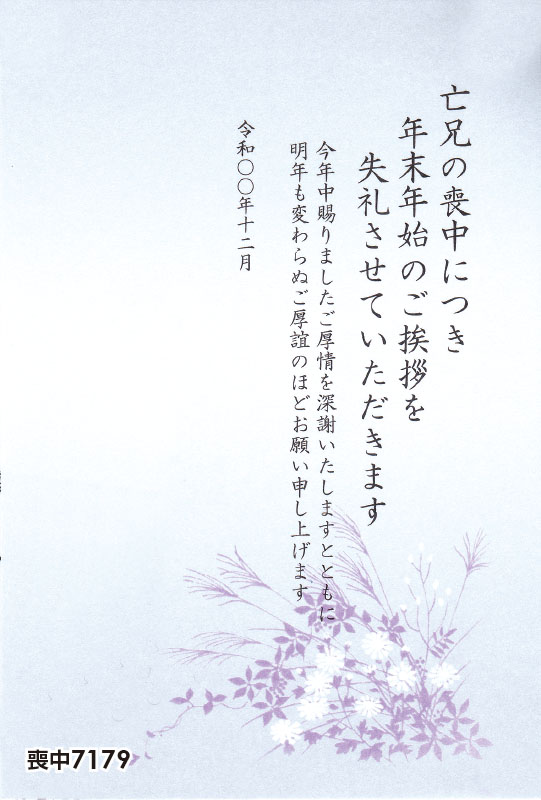 亡兄の喪中につき
年末年始のご挨拶を
失礼させていただきます
今年中賜りましたご厚情を深謝いたしますとともに
明年も変わらぬご厚誼のほどお願い申し上げます
令和〇〇年十二月
喪中7179